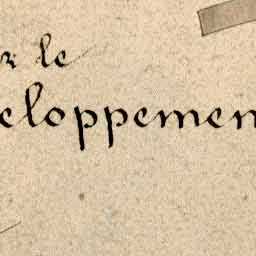 r le
eloppemen